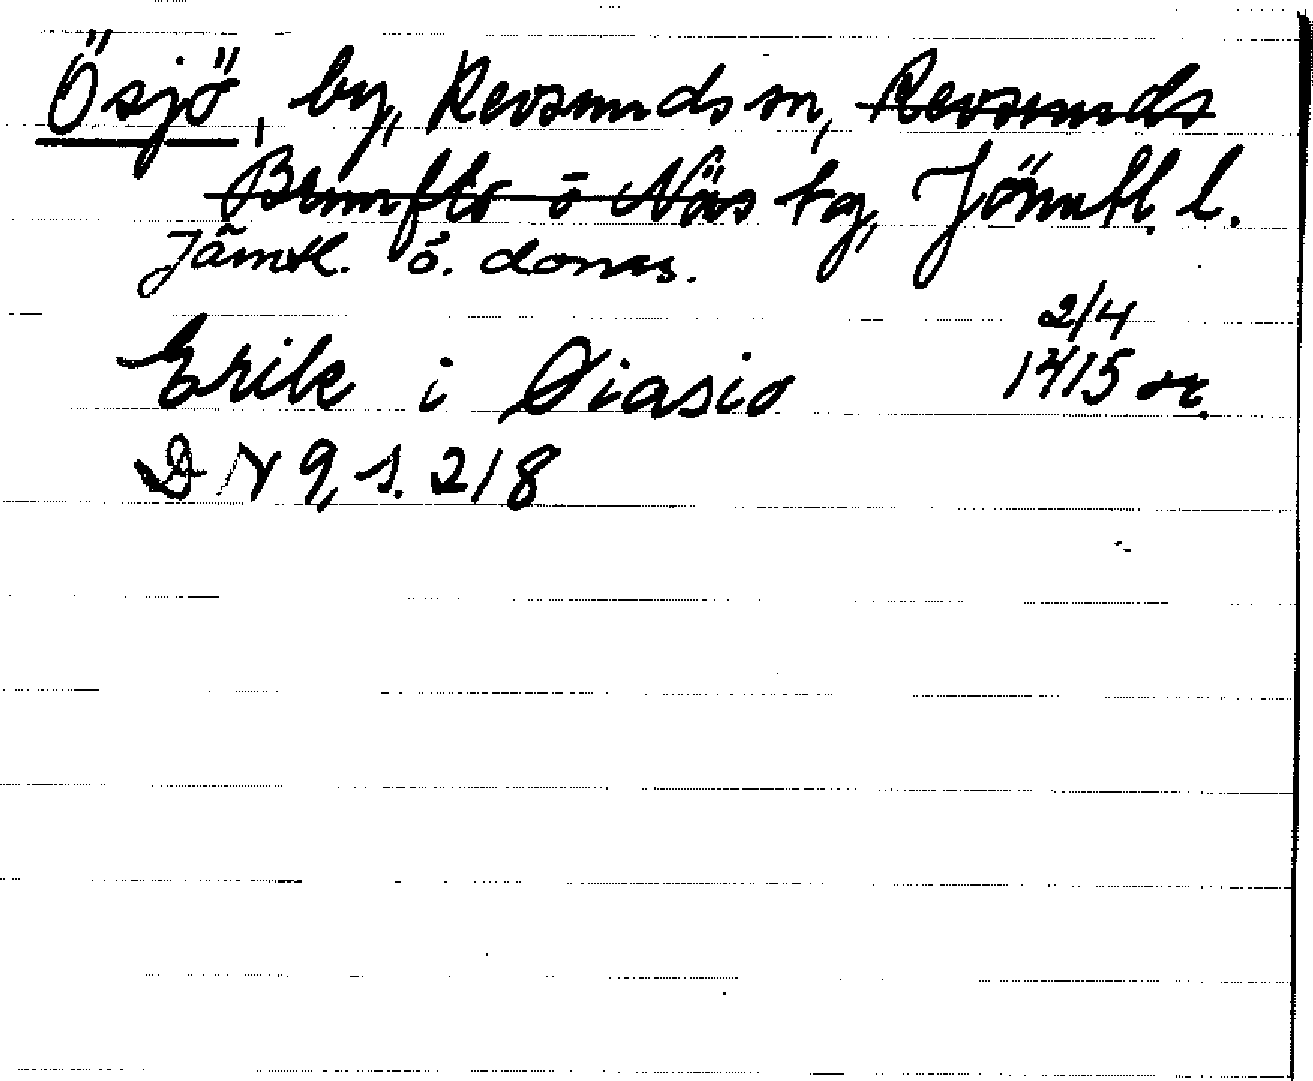 Ösjö, by, Revsunds sn, Revsunds
Brunflo ö Näs tg, Jämtl. l.
Jämtl. ö. doms.
2/4
Erik i Øiasio 1415 or.
D N 9, s. 218